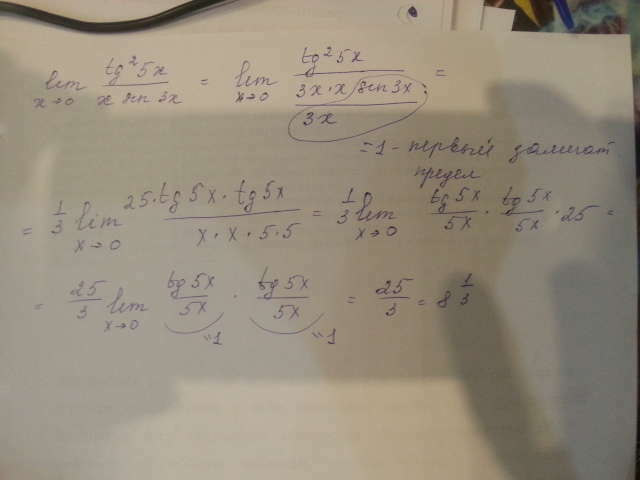 lim x→0 tg²5x / (x sin 3x) = lim x→0 tg²5x / (3x·x sin 3x / 3x) =
= 1 - первый замечат.
предел
= 1/3 lim x→0 25·tg 5x·tg 5x / (x·x·5·5) = 1/3 lim x→0 tg 5x / 5x · tg 5x / 5x · 25 =
= 25/3 lim x→0 tg 5x / 5x · tg 5x / 5x = 25/3 = 8 1/3
=1 =1